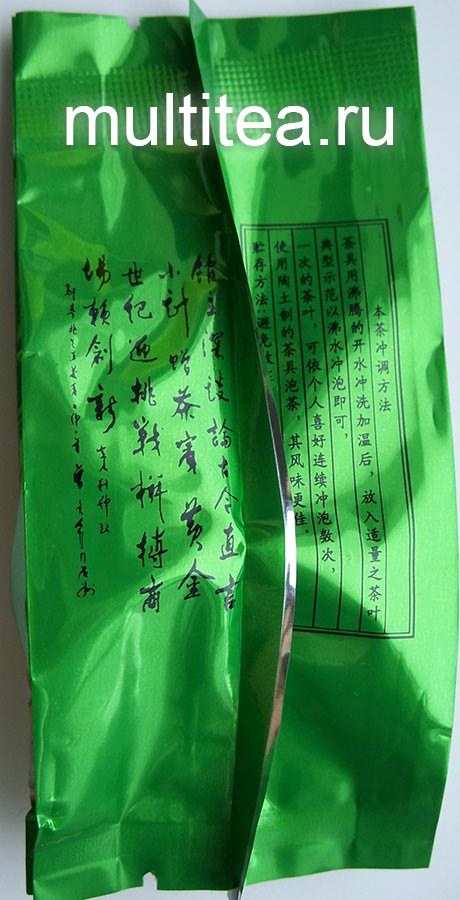 multitea.ru
本茶冲调方法
茶具用沸腾的开水冲洗加温后，放入适量之茶叶
典型示范以沸水冲泡即可，
一次的茶叶，可依个人喜好连续冲泡数次，
使用陶土制的茶具泡茶，其风味更佳。
贮存方法:避免
論古今直言
小計贈茶賓黄金
世纪迎挑戰搏商
場賴創新